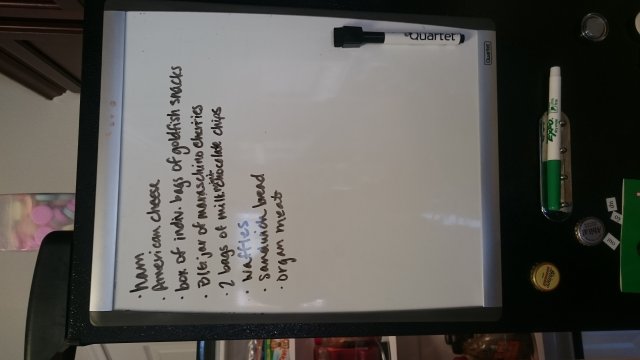 ham
· American cheese
· box of indiv. bags of goldfish snacks
· 8 lb. jar of maraschino cherries
2 bags of milk chocolate chips
· waffles
· sandwich bread
· organ meat
Quartet
Quartet
EXPO